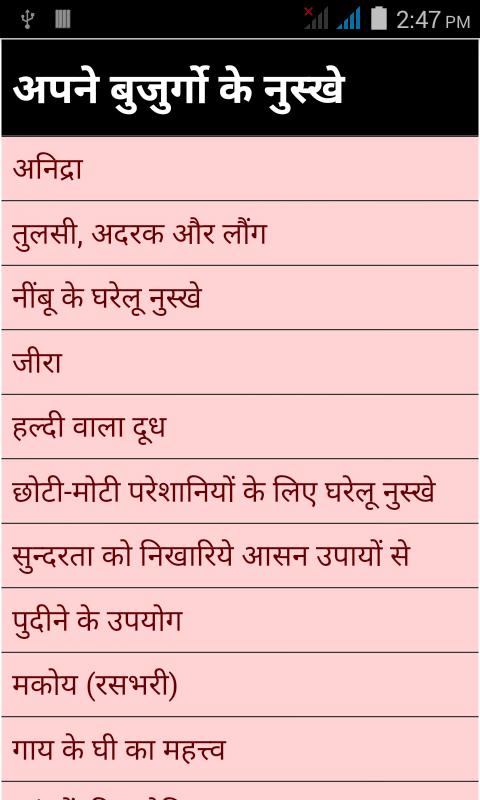 2:47 PM
अपने बुजुर्गो के नुस्खे
अनिद्रा
तुलसी, अदरक और लौंग
नींबू के घरेलू नुस्खे
जीरा
हल्दी वाला दूध
छोटी-मोटी परेशानियों के लिए घरेलू नुस्खे
सुन्दरता को निखारिये आसन उपायों से
पुदीने के उपयोग
मकोय (रसभरी)
गाय के घी का महत्त्व